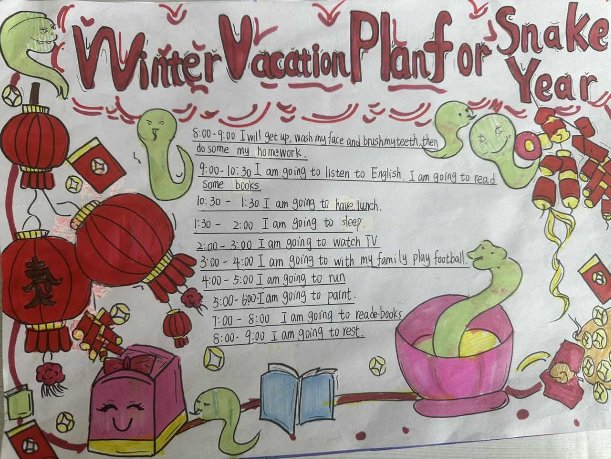 Winter Vacation Plan for Snake Year
8:00-9:00 I will get up, wash my face and brush my teeth. then
do some my homework.
9:00-10:30 I am going to listen to English. I am going to read
some books.
10:30 - 1:30 I am going to have lunch.
1:30 - 2:00 I am going to sleep.
2:00 - 3:00 I am going to watch TV
3:00 - 4:00 I am going to with my family play football.
4:00 - 5:00 I am going to run
5:00-6:00 I am going to paint.
7:00 - 8:00 I am going to reade books
8:00 - 9:00 I am going to rest.